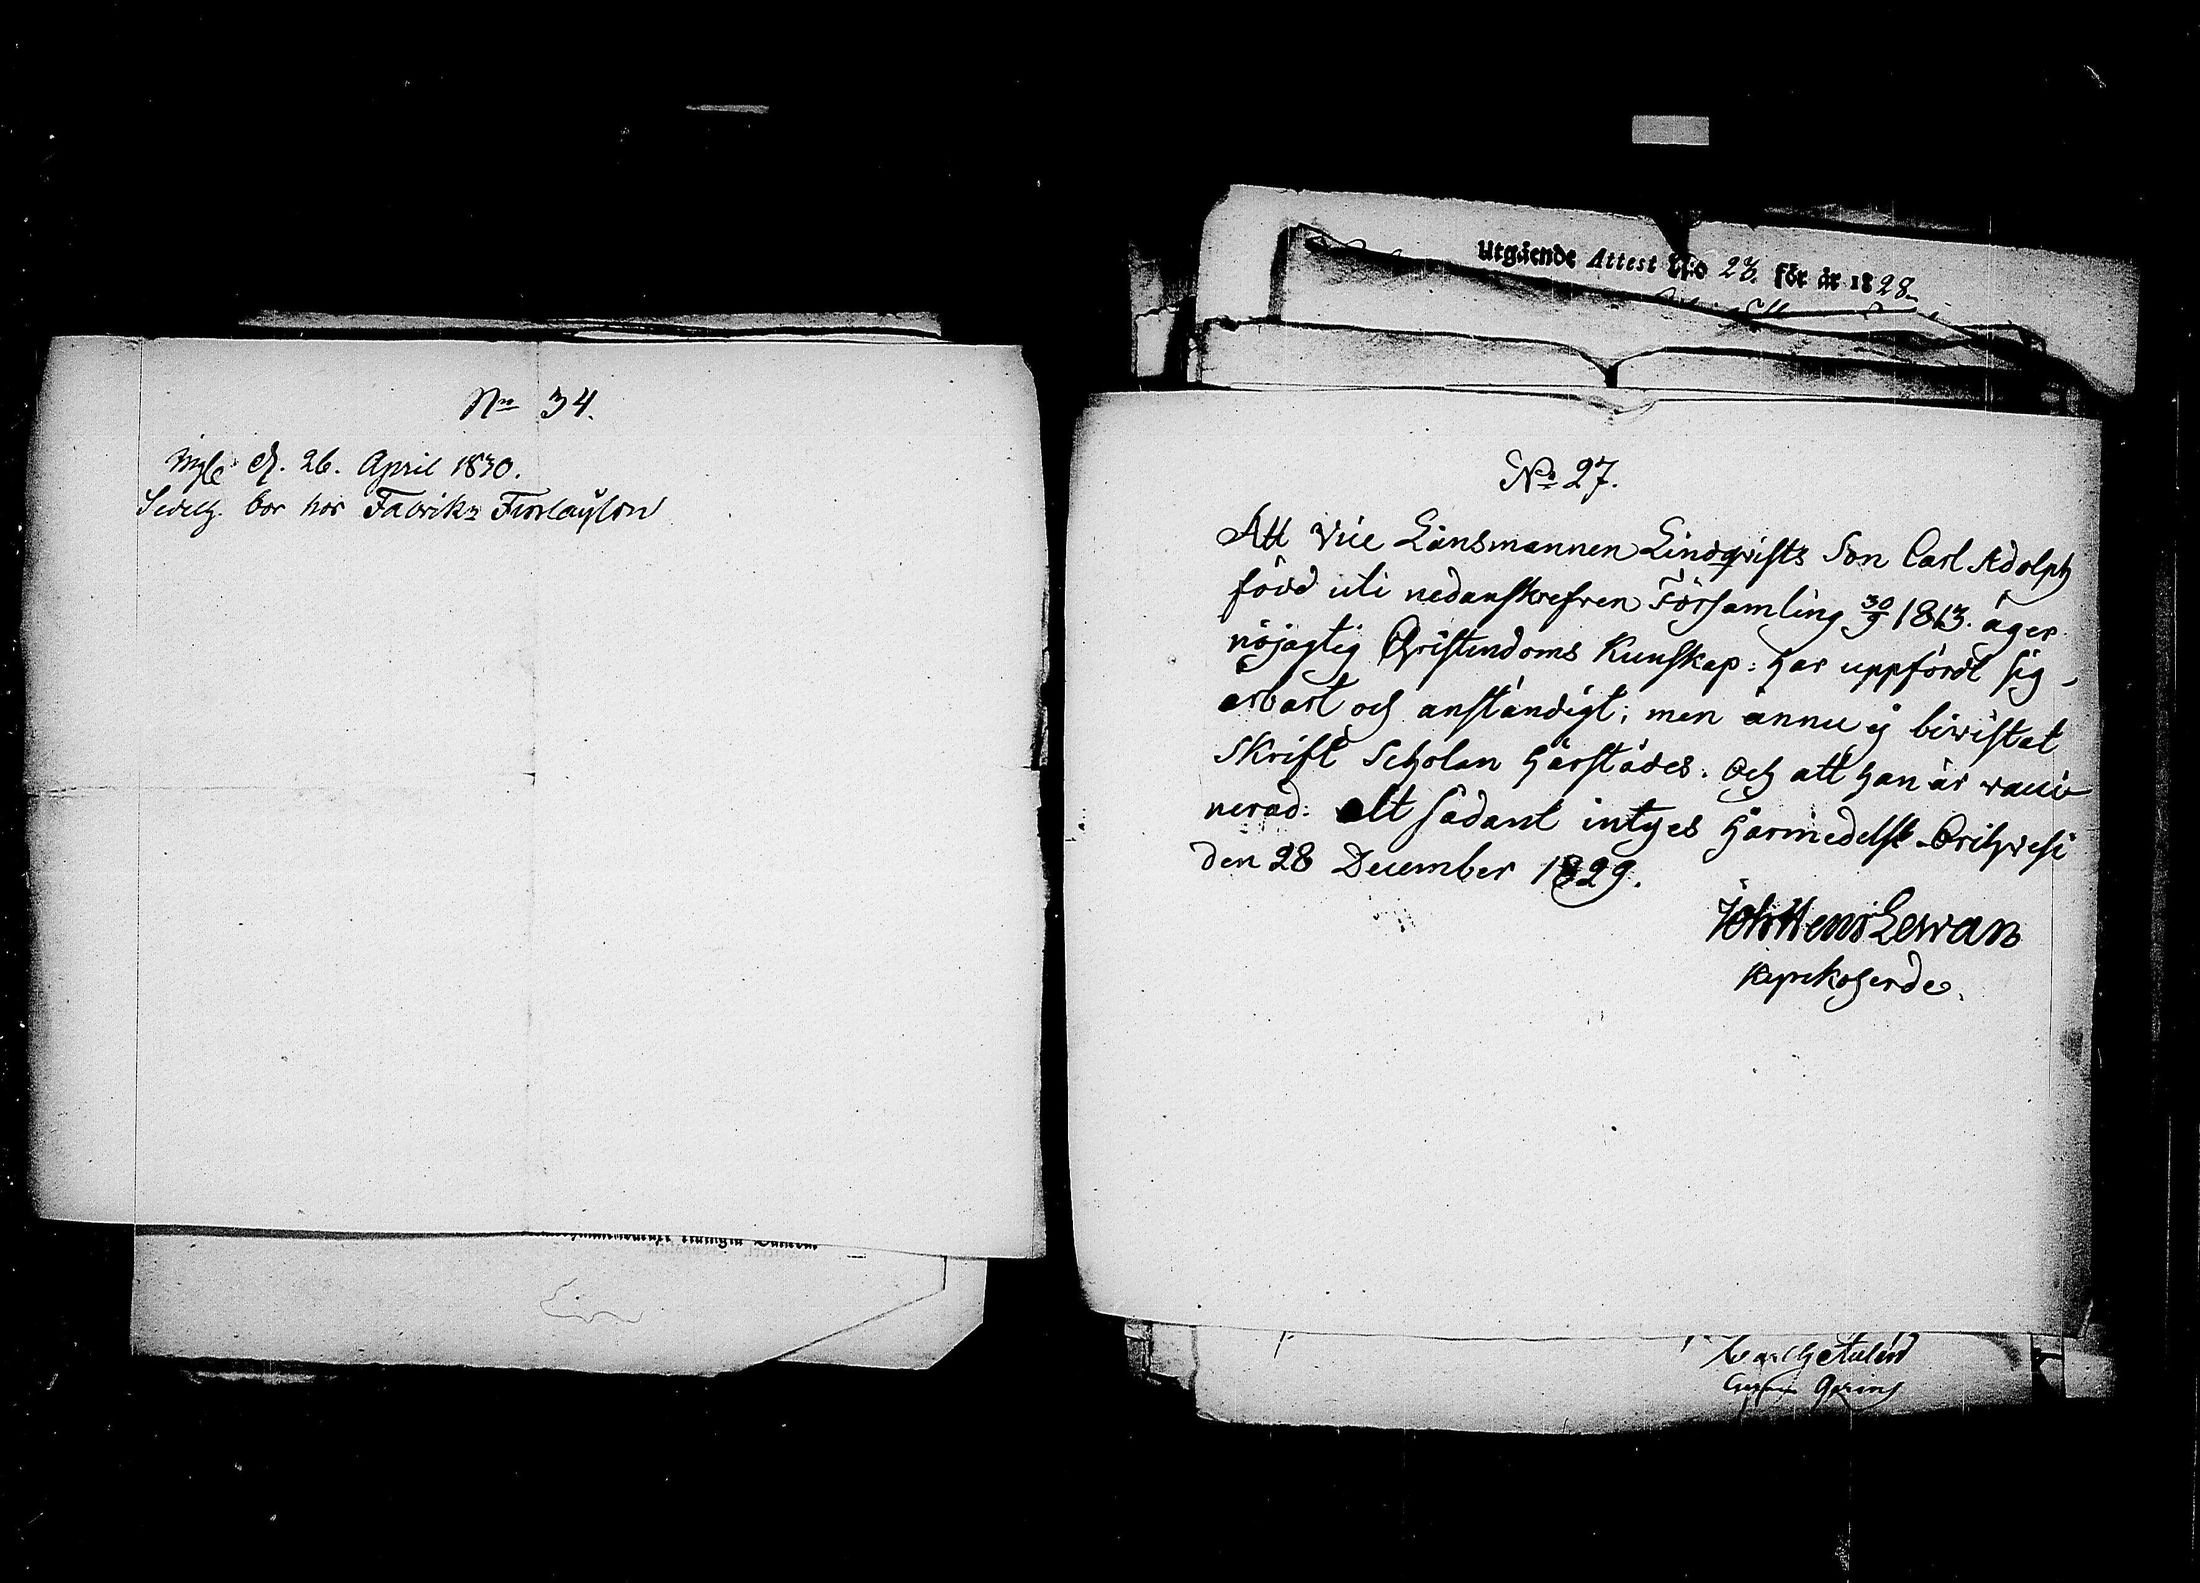 No 34.
Ingk d. 26. April 1830.
bor hos Fabrikn Finlayson
Utgående Attest N:o 23. för år 1828.
No 27.
Att Vice Länsmannen Lindqvists Son Carl Adolph
född uti nedanskrefven Församling 30/9 1813. äger
nöjagtig Christendoms Kunskap: har uppfördt sig
ärbart och anständigt; men ännu ej biwistat
Skrift Scholan härstädes. Och att han är vacci-
nerad: alt sådant intyges härmedelst. Orihvesi
den 28 December 1829.
Joh Henr Lewan
Kyrkoherde.